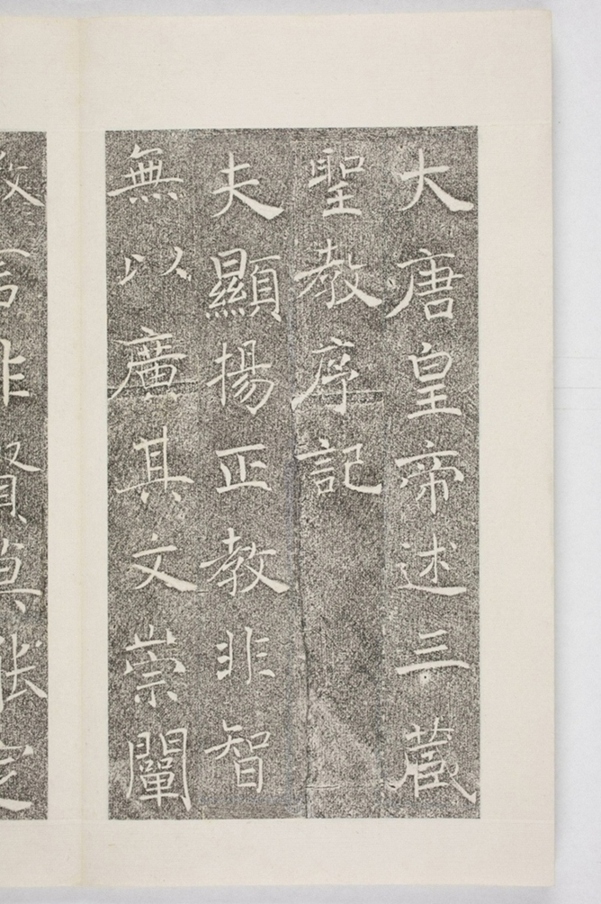 大唐皇帝述三藏
聖教序記
夫顯揚正教非智
無以廣其文崇闡
言非賢莫能定